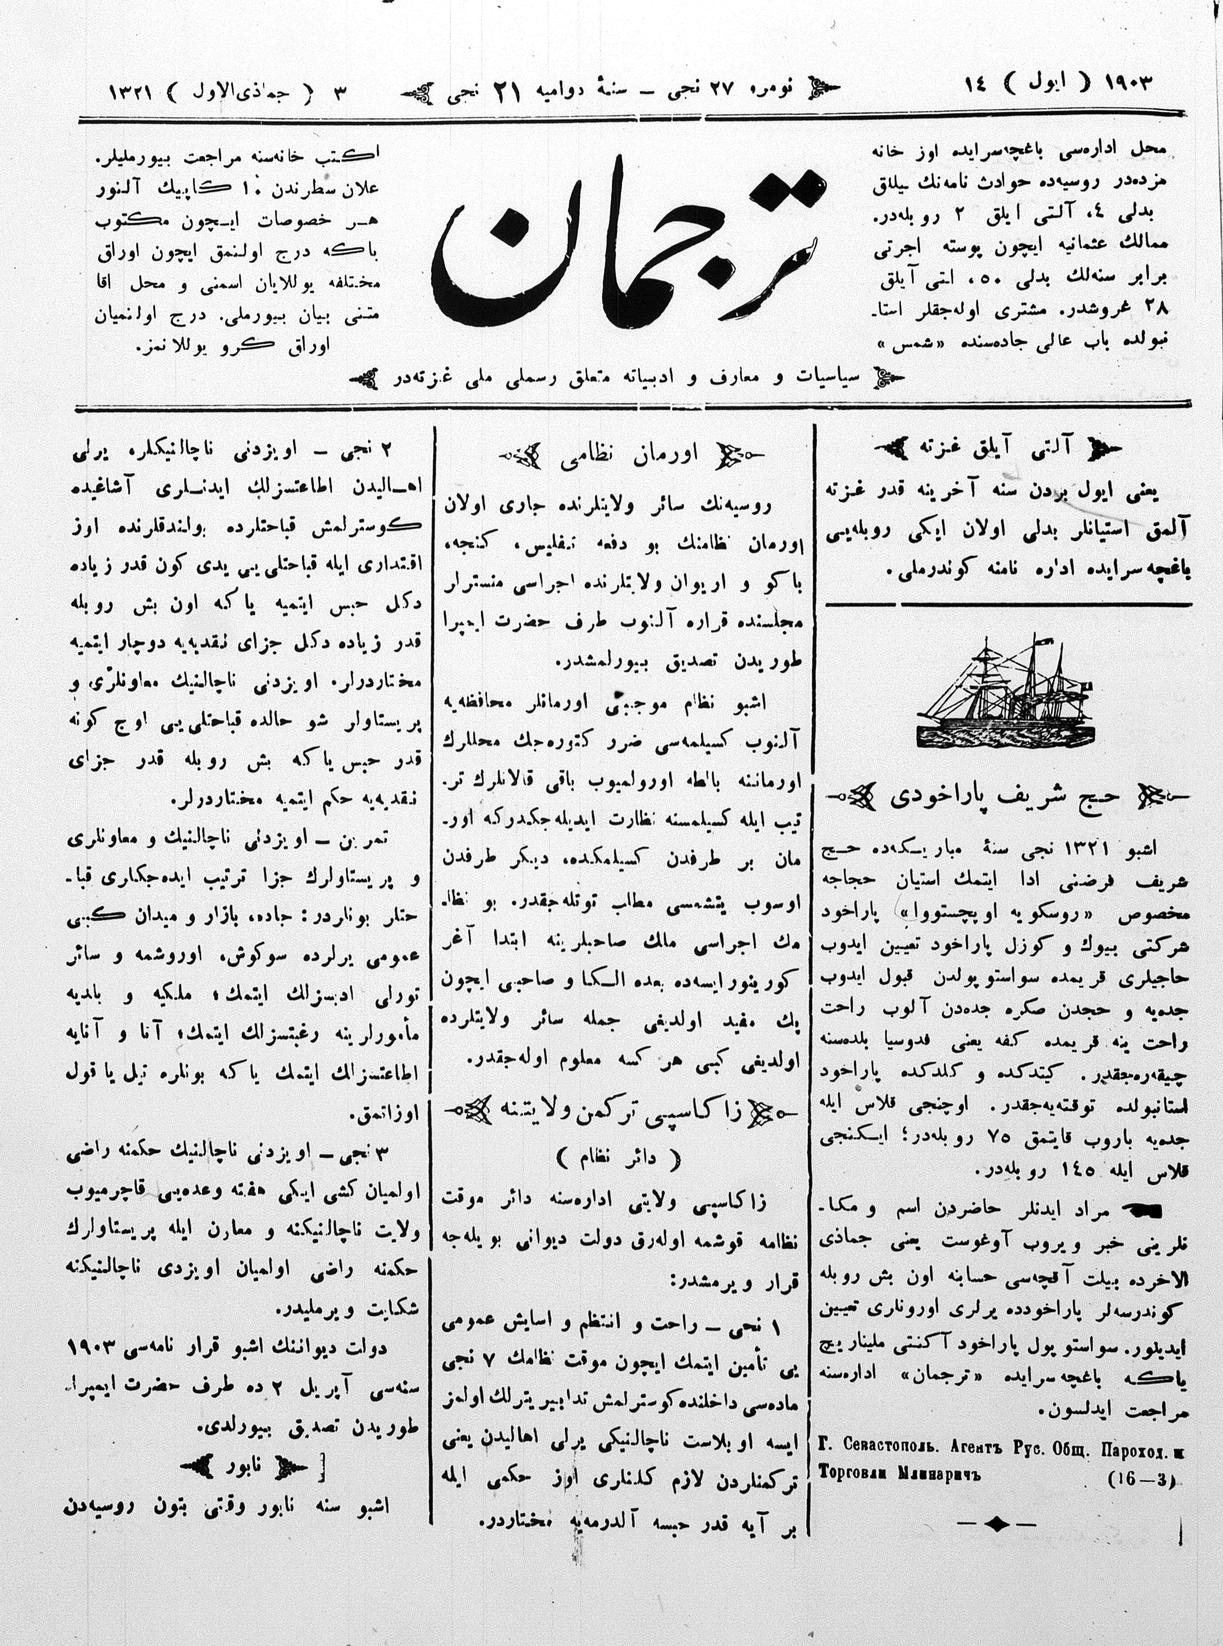 ١٩٠٣ ( ایول ) ١٤
نومره ٢٧ نجی — سنهٔ دوامیه ٢١ نجی
٣ ( جماذی‌الاول ) ١٣٢١
محل اداره‌سی باغچه‌سرایده اوز خانه
مزده‌در روسیه‌ده حوادث نامه‌نك ییللق
بدلی ٤، آلتی ایلق ٢ روبله‌در.
ممالك عثمانیه ایچون پوسته اجرتی
برابر سنه‌لك بدلی ٥٠، التی آیلق
٢٨ غروشدر. مشتری اوله‌جقلر استا-
نبولده باب عالی جاده‌سنده «شمس»
ترجمان
اكتب خانه‌سنه مراجعت بیورملیلر.
علان سطرندن ١٠ كاپیك آلنور
هر خصوصات ایچون مكتوب
یاكه درج اولنمق ایچون اوراق
مختلفه یوللایان اسمنی و محل اقا
متنی بیان بیورملی. درج اولنمیان
اوراق كرو یوللانمز.
سیاسیات و معارف و ادبیاته متعلق رسملی ملی غزته‌در
آلتی آیلق غزته
یعنی ایول بردن سنه آخرینه قدر غزته
آلمق استیانلر بدلی اولان ایكی روبله‌یی
باغچه‌سرایده اداره نامنه كوندرملی.
حج شریف پاراخودی
اشبو ١٣٢١ نجی سنهٔ مباركه‌ده حج
شریف فرضنی ادا ایتمك استیان حجاجه
مخصوص «روسكویه اوپچستووا» پاراخود
شركتی بیوك و كوزل پاراخود تعیین ایدوب
حاجیلری قریمده سواستوپولدن قبول ایدوب
جده‌یه و حجدن صكره جده‌دن آلوب راحت
راحت ینه قریمده كفه یعنی فدوسیا بلده‌سنه
چیقه‌ره‌جقدر. كیتدكده و كلدكده پاراخود
استانبولده توقته‌یه‌جقدر. اوچنجی قلاس ایله
جده‌یه باروب قایتمق ٧٥ روبله‌در؛ ایكنجی
قلاس ایله ١٤٥ روبله‌در.
مراد ایدنلر حاضردن اسم و مكا-
نلرینی خبر ویروب آوغوست یعنی جماذی
الاخرده بیلت آقچه‌سی حسابنه اون بش روبله
كوندرسه‌لر پاراخودده یرلری اورونلری تعیین
ایدیلور. سواستوپول پاراخود آكنتی ملیناریچ
یاكه باغچه‌سرایده «ترجمان» اداره‌سنه
مراجعت ایدلسون.
Г. Севастополь. Агентъ Рус. Общ. Пароход. и
Торговли Млинаричъ (16—3)
اورمان نظامی
روسیه‌نك سائر ولایتلرنده جاری اولان
اورمان نظامنك بو دفعه تفلیس، كنجه،
باكو و اریوان ولایتلرنده اجراسی منسترلر
مجلسنده قراره آلنوب طرف حضرت ایمپرا
طوریدن تصدیق بیورلمشدر.
اشبو نظام موجبی اورمانلر محافظه‌یه
آلنوب كسیلمه‌سی ضرر كتوره‌جك محللرك
اورماننه بالطه اورولمیوب باقی قالانلرك تر-
تیب ایله كسیلمسنه نظارت ایدیله‌جكدركه اور-
مان بر طرفدن كسیلمكده، دیكر طرفدن
اوسوب یتشمسی مطلب توتله‌جقدر. بو نظا-
مك اجراسی ملك صاحبلرینه ابتدا آغر
كورینور ایسه‌ده بعده الكا و صاحبی ایچون
پك مفید اولدیغی جمله سائر ولایتلرده
اولدیغی كبی هر كسه معلوم اوله‌جقدر.
زاكاسپی تركمن ولایتنه
( دائر نظام )
زاكاسپی ولایتی اداره‌سنه دائر موقت
نظامه قوشمه اوله‌رق دولت دیوانی بویله‌جه
قرار ویرمشدر:
١ نجی — راحت و انتظم و اسایش عمومی
یی تأمین ایتمك ایچون موقت نظامك ٧ نجی
ماده‌سی داخلنده كوسترلمش تدابیر یترلك اولمز
ایسه اوبلاست ناچالنیكی یرلی اهالیدن یعنی
تركمنلردن لازم كلنلری اوز حكمی ایله
بر آیه قدر حبسه آلدرمه‌یه مختاردر.
٢ نجی — اویزدنی ناچالنیكلره یرلی
اهالیدن اطاعتسزلك ایدنلری آشاغیده
كوسترلمش قباحتلرده بولندقلرنده اوز
اقتداری ایله قباحتلی‌یی یدی كون قدر زیاده
دكل حبس ایتمیه یاكه اون بش روبله
قدر زیاده دكل جزای نقدیه‌یه دوچار ایتمیه
مختاردرلر. اویزدنی ناچالنیك معاونلری و
پریستاولر شو حالده قباحتلی‌یی اوچ كونه
قدر حبس یاكه بش روبله قدر جزای
نقدیه‌یه حكم ایتمیه مختاردرلر.
تمرین — اویزدنی ناچالنیك و معاونلری
و پریستاولرك جزا ترتیب ایده‌جكلری قبا-
حتلر بونلردر: جاده، بازار و میدان كبی
عمومی یرلرده سوكوش، اوروشمه و سائر
تورلی ادبسزلك ایتمك؛ ملكیه و بلدیه
مأمورلرینه رغبتسزلك ایتمك؛ آنا و آتایه
اطاعتسزلك ایتمك یاكه بونلره تیل یا قول
اوزاتمق.
٣ نجی — اویزدنی ناچالنیك حكمنه راضی
اولمیان كشی ایكی هفته وعده‌یی قاچرمیوب
ولایت ناچالنیكنه و معاون ایله پریستاولرك
حكمنه راضی اولمیان اویزدی ناچالنیكنه
شكایت ویرملیدر.
دولت دیواننك اشبو قرار نامه‌سی ١٩٠٣
سنه‌سی آپریل ٢ ده طرف حضرت ایمپرا-
طوریدن تصدیق بیورلدی.
نابور
اشبو سنه نابور وقتی بتون روسیه‌دن